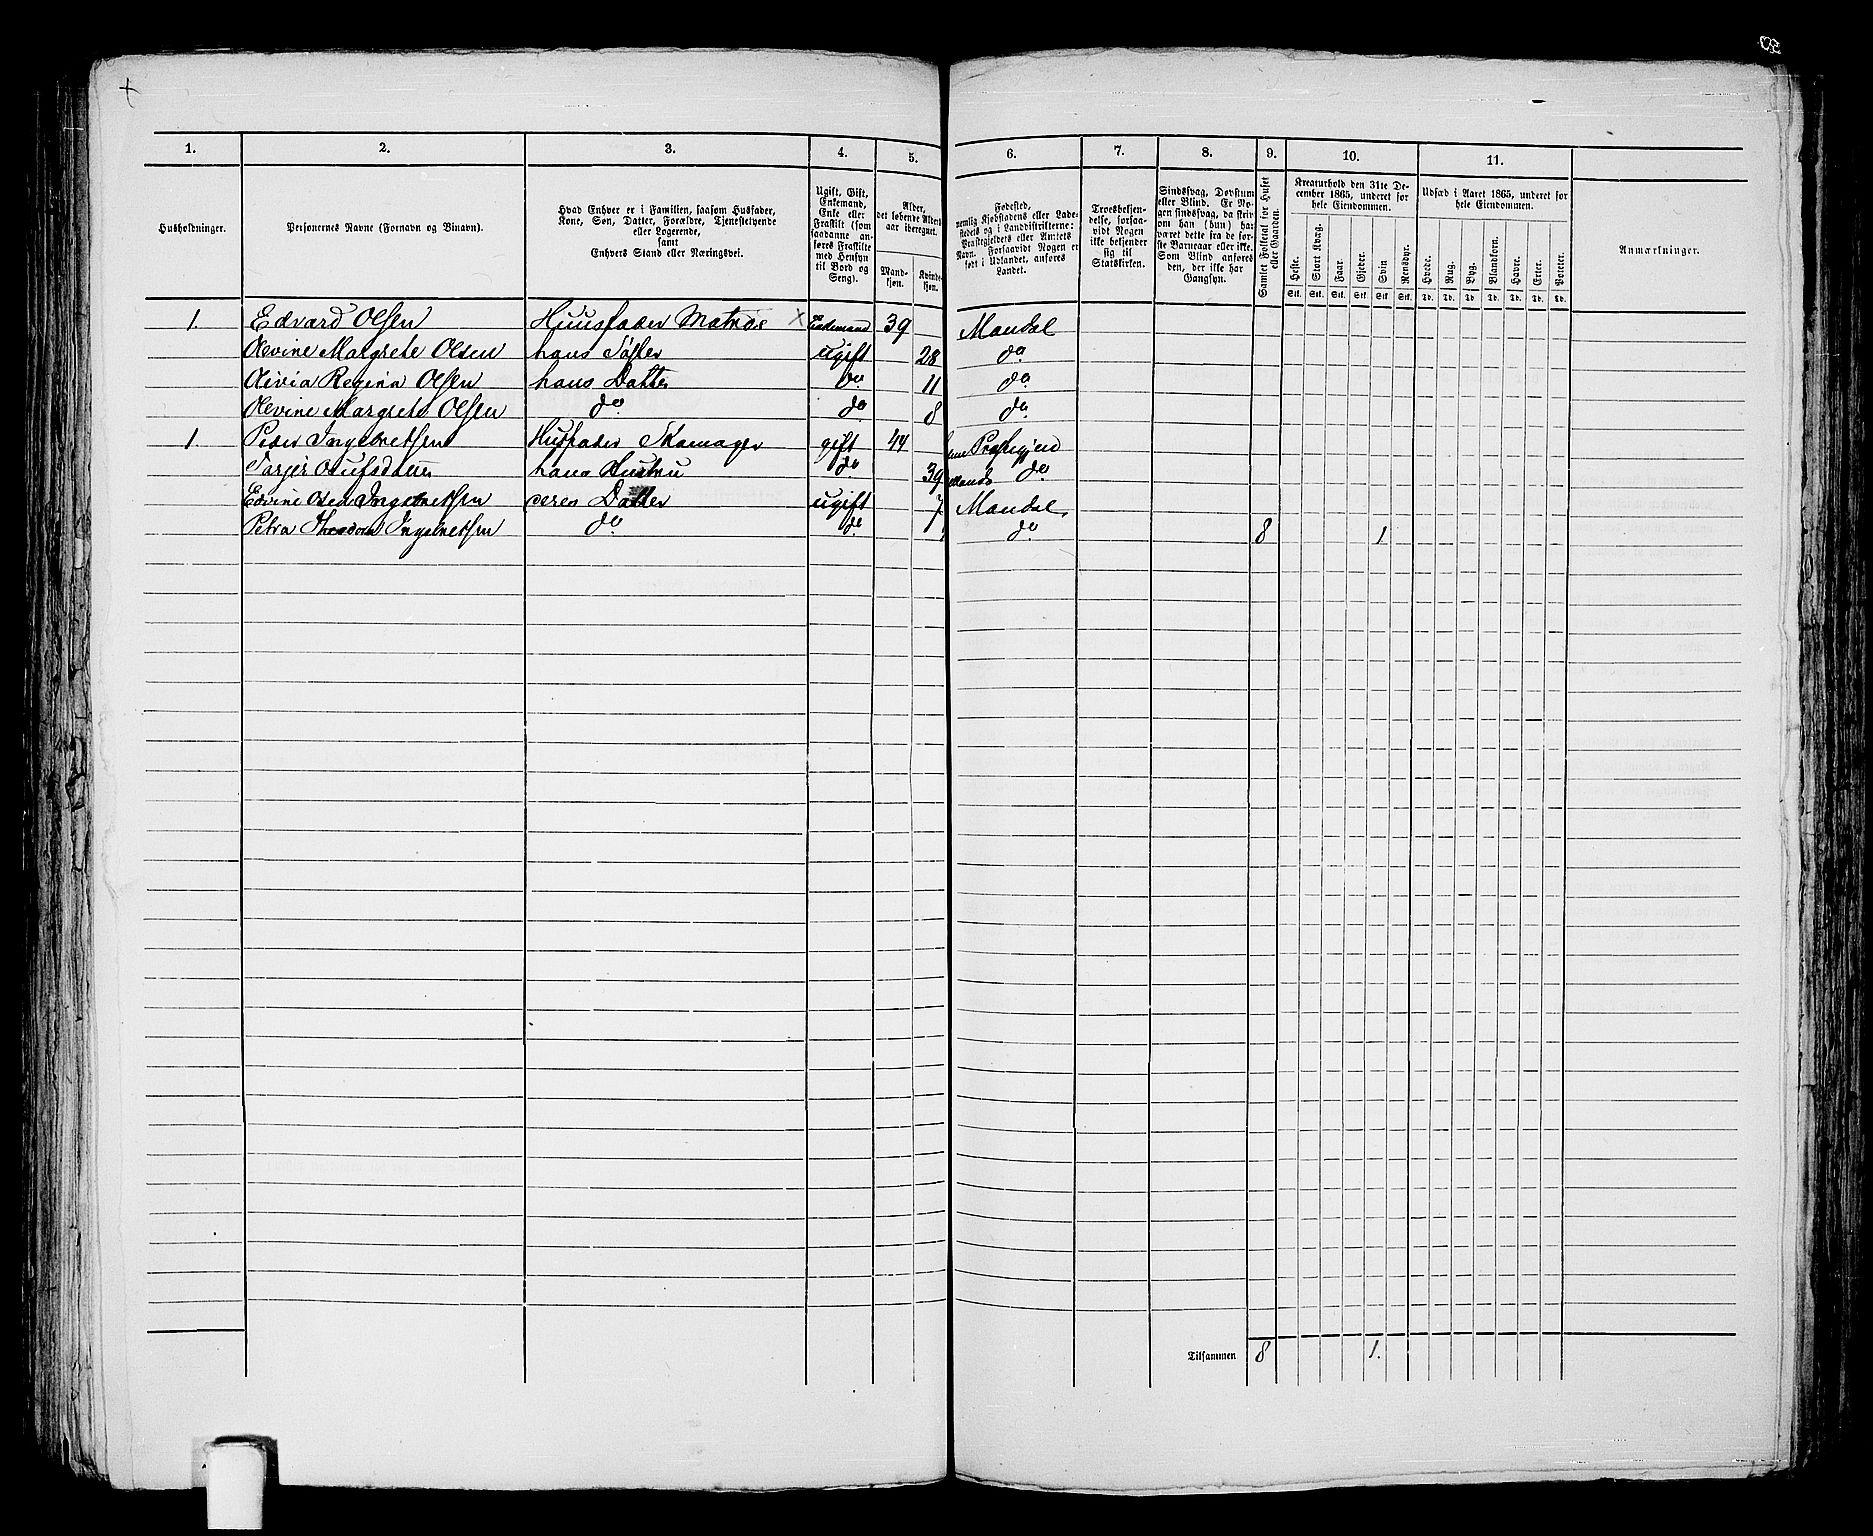 1. 2. 3. 4. 5. 6. 7. 8. 9. 10. 11.
Husholdninger.
Personernes Navne (Fornavn og Binavn).
Hvad Enhver er i Familien, saasom Husfader,
Kone, Søn, Datter, Forældre, Tjenestetyende
eller Logerende,
samt
Enhvers Stand eller Næringsvei.
Ugift, Gift,
Enkemand,
Enke eller
Fraskilt (som
saadanne an-
føres Fraskilte
med Hensyn
til Bord og
Seng).
Alder,
det løbende Alders-
aar iberegnet.
Mand-
kjøn.
Kvinde-
kjøn.
Fødested,
nemlig Kjøbstadens eller Lade-
stedets og i Landdistrikterne:
Præstegjeldets eller Amtets
Navn. Forsaavidt Nogen er
født i Udlandet, anføres
Landet.
Troesbekjen-
delse, forsaa-
vidt Nogen
ikke bekjender
sig til
Statskirken.
Sindssvag, Døvstum
eller Blind. Er No-
gen sindssvag, da skriv
om han (hun) har
været dette fra de før-
ste Barneaar eller ikke.
Som Blind anføres
den, der ikke har
Gangsyn.
Samlet Folketal for Huset
eller Gaarden.
Kreaturhold den 31te De-
cember 1865, underet for
hele Eiendommen.
Heste. Stort Kvæg. Faar. Gjeder. Svin Rensdyr.
Stk. Stk. Stk. Stk. Stk. Stk.
Udsæd i Aaret 1865, underet for
hele Eiendommen.
Hvede. Rug. Byg. Blandkorn. Havre. Erter. Poteter.
Td. Td. Td. Td. Td. Td. Td.
Anmærkninger.
1. Edvard Olsen Huusfader Matros X Enkemand 39 Mandal
Olevine Margrete Olsen hans Søster ugift 28 do
Regina Olsen hans Datter do 11 do
Olevine Margrete Olsen do do 8 do
1. Peder Ingebretsen Husfader Skomager gift 44 Præstegjeld
hans Hustru do 39 do
Edvine Ingebretsen deres Datter ugift 7 Mandal,
Petra Theodora Ingebretsen do do 1 do 8 1
Tilsammen 8 1.